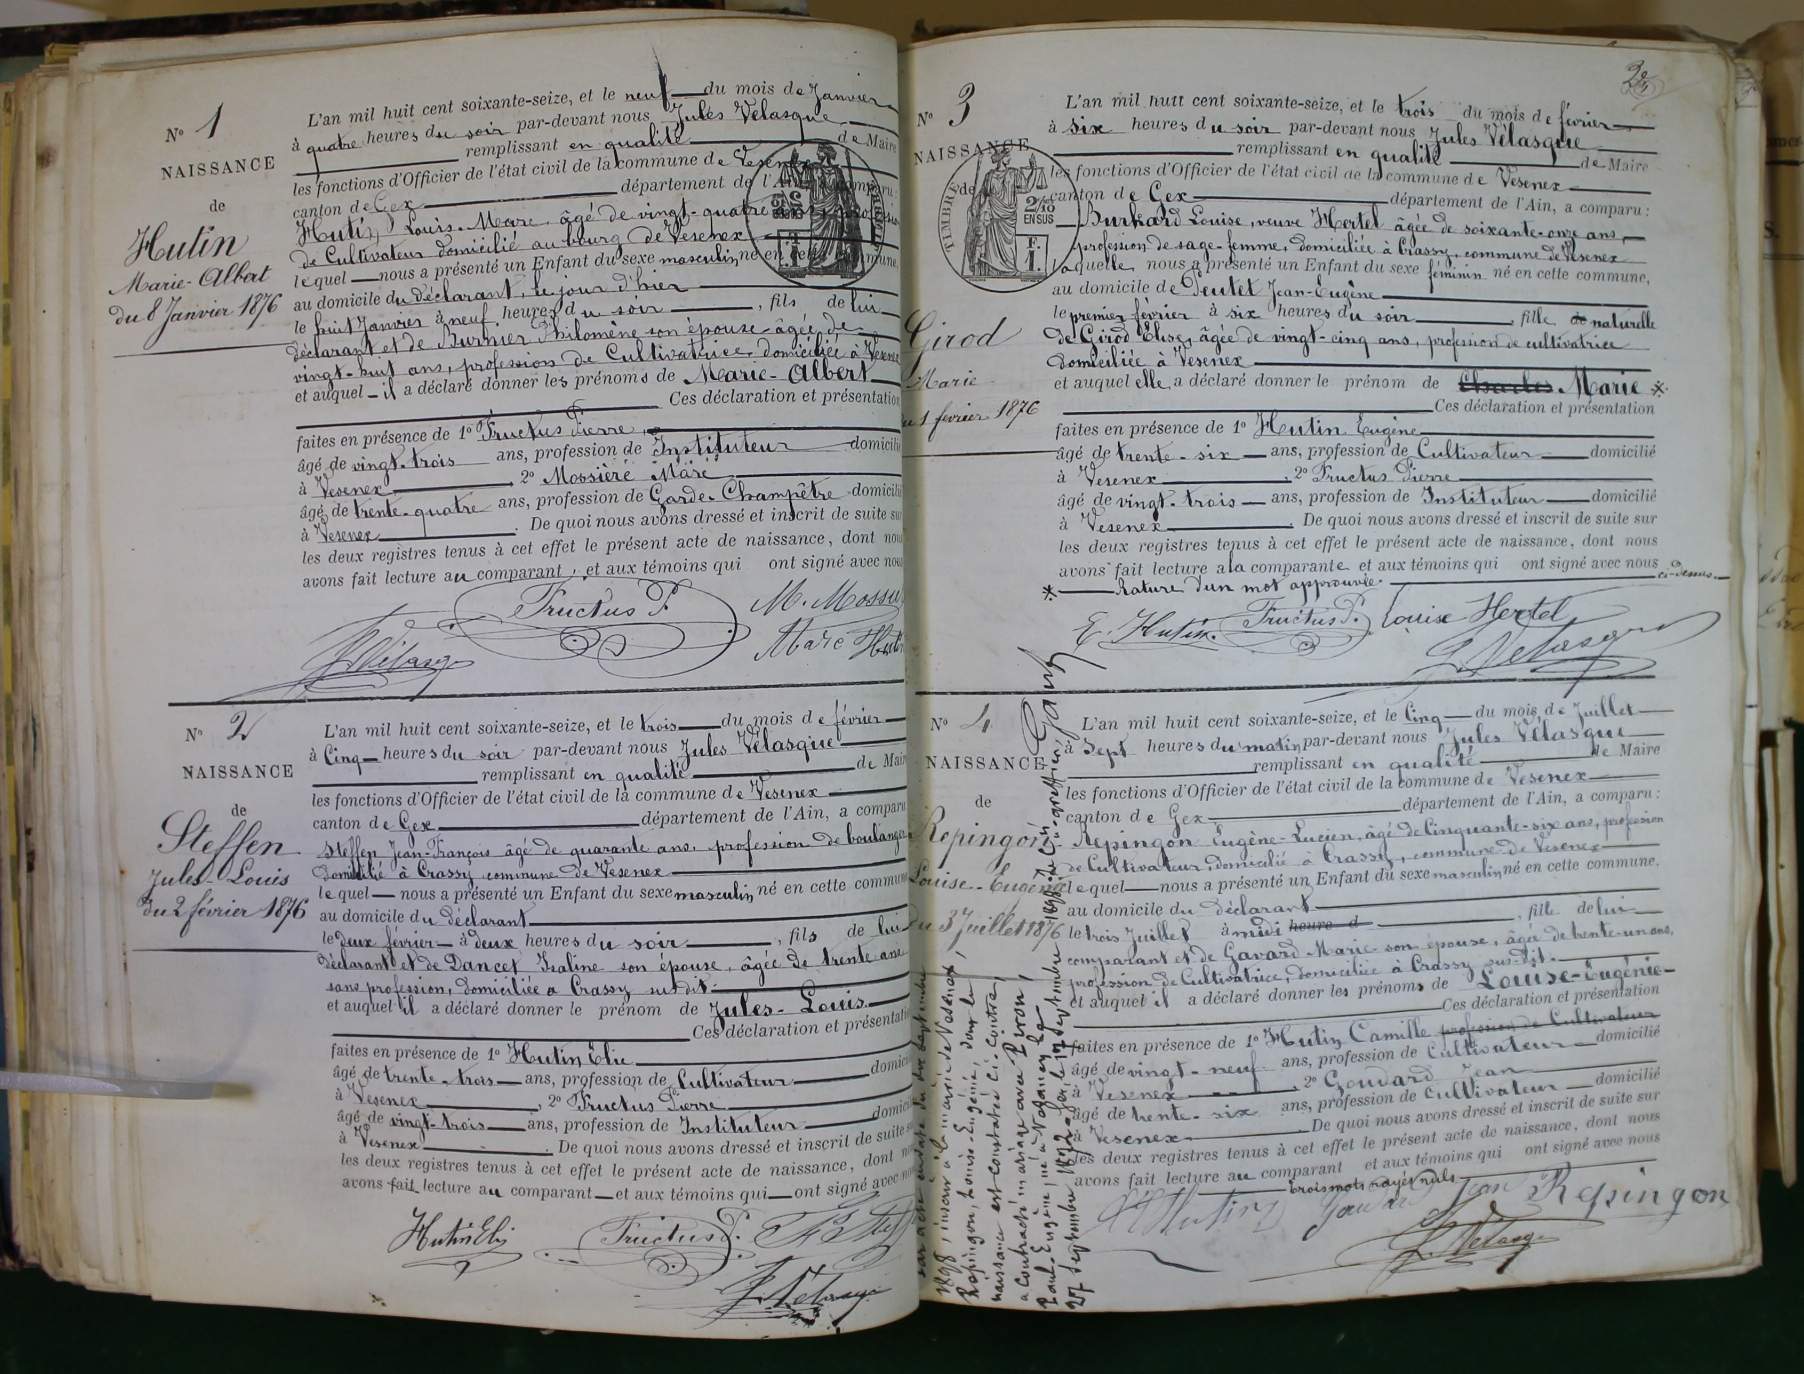 N° 1
NAISSANCE
de
Hutin
Marie-Albert
du 8 Janvier 1876
L'an mil huit cent soixante-seize, et le neuf du mois de Janvier
à quatre heures du soir par-devant nous Jules Vélasque
remplissant en qualité de Maire
les fonctions d'Officier de l'état civil de la commune de Vesenex
canton de Gex département de l'Ain, a comparu
Hutin Louis-Marc, âgé de vingt-quatre
de Cultivateur domicilié au bourg de Vesenex
lequel nous a présenté un Enfant du sexe masculin né en cette commune,
au domicile du déclarant, le jour d'hier
le huit Janvier à neuf heures du soir, fils de lui
déclarant et de Burnier Philomène son épouse âgée de
vingt-huit ans, profession de Cultivatrice domiciliée à Vesenex
et auquel il a déclaré donner les prénoms de Marie-Albert
Ces déclaration et présentation
faites en présence de 1° Fructus Pierre,
âgé de vingt-trois ans, profession de Instituteur domicilié
à Vesenex, 2° Mossiere Marc
âgé de trente-quatre ans, profession de Garde-Champêtre domicilié
à Vesenex. De quoi nous avons dressé et inscrit de suite sur
les deux registres tenus à cet effet le présent acte de naissance, dont nous
avons fait lecture au comparant, et aux témoins qui ont signé avec nous
Fructus P. M. Mossu
Marc Hutin
J. Vélasque
N° 2
NAISSANCE
de
Steffen
Jules-Louis
du 2 février 1876
L'an mil huit cent soixante-seize, et le trois du mois de février
à Cinq heures du soir par-devant nous Jules Vélasque
remplissant en qualité de Maire
les fonctions d'Officier de l'état civil de la commune de Vesenex
canton de Gex département de l'Ain, a comparu
Steffen Jean-François âgé de quarante ans, profession de boulanger
domicilié à Crassy commune de Vesenex
lequel nous a présenté un Enfant du sexe masculin né en cette commune
au domicile du déclarant
le deux février à deux heures du soir, fils de lui
déclarant et de Dancet Isaline son épouse, âgée de trente ans
sans profession, domiciliée à Crassy sus dit.
et auquel il a déclaré donner le prénom de Jules-Louis
Ces déclaration et présentation
faites en présence de 1° Hutin Elie
âgé de trente-trois ans, profession de Cultivateur domicilié
à Vesenex, 2° Fructus Pierre
âgé de vingt-trois ans, profession de Instituteur domicilié
à Vesenex. De quoi nous avons dressé et inscrit de suite
les deux registres tenus à cet effet le présent acte de naissance, dont
avons fait lecture au comparant et aux témoins qui ont signé avec
Hutin Eli Fructus P.
J. Vélasque
N° 3
NAISSANCE
de
Girod
Marie
du 1 février 1876
TIMBRE
2/10
EN SUS
F.
1.
L'an mil huit cent soixante-seize, et le trois du mois de février
à six heures du soir par-devant nous Jules Vélasque
remplissant en qualité de Maire
les fonctions d'Officier de l'état civil de la commune de Vesenex
canton de Gex département de l'Ain, a comparu :
Burkard Louise, veuve Hertel âgée de soixante-onze ans,
profession de sage-femme, domiciliée à Crassy, commune de Vesenex
laquelle nous a présenté un Enfant du sexe féminin né en cette commune,
au domicile de Deutet Jean-Eugène
le premier février à six heures du soir, fille de naturelle
de Girod Elise, âgée de vingt-cinq ans, profession de cultivatrice
domiciliée à Vesenex
et auquel elle a déclaré donner le prénom de Charles Marie *
Ces déclaration et présentation
faites en présence de 1° Hutin Eugène
âgé de trente-six ans, profession de Cultivateur domicilié
à Vesenex, 2° Fructus Pierre
âgé de vingt-trois ans, profession de Instituteur domicilié
à Vesenex. De quoi nous avons dressé et inscrit de suite sur
les deux registres tenus à cet effet le présent acte de naissance, dont nous
avons fait lecture à la comparante et aux témoins qui ont signé avec nous ci-dessus
* Rature d'un mot approuvée.
E. Hutin. Fructus P. Louise Hertel
J. Vélasque
N° 4
NAISSANCE
de
Repingon
Louise-Eugénie
du 3 Juillet 1876
L'an mil huit cent soixante-seize, et le Cinq du mois de Juillet
à Sept heures du matin par-devant nous Jules Vélasque
remplissant en qualité de Maire
les fonctions d'Officier de l'état civil de la commune de Vesenex
canton de Gex département de l'Ain, a comparu :
Repingon Eugène-Lucien, âgé de Cinquante-six ans, profession
de Cultivateur, domicilié à Crassy, commune de Vesenex
lequel nous a présenté un Enfant du sexe masculin né en cette commune.
au domicile du déclarant
le trois Juillet à midi heure d, fille de lui
comparant et de Gavard Marie son épouse, âgée de trente-un ans,
profession de Cultivatrice, domiciliée à Crassy sus-dit.
et auquel il a déclaré donner les prénoms de Louise-Eugénie
Ces déclaration et présentation
faites en présence de 1° Hutin Camille profession de Cultivateur
âgé de vingt-neuf ans, profession de Cultivateur domicilié
à Vesenex, 2° Goudard Jean
âgé de trente-six ans, profession de Cultivateur domicilié
à Vesenex. De quoi nous avons dressé et inscrit de suite sur
les deux registres tenus à cet effet le présent acte de naissance, dont nous
avons fait lecture au comparant et aux témoins qui ont signé avec nous
trois mots rayés nuls
C. Hutin Goudard Jean Repingon
J. Vélasque
1898, inscrit à la mairie de Vesenex,
Repingon, Louise-Eugénie, dont la
naissance est constatée ci-contre,
a contracté mariage avec Piron,
Paul-Eugène, né à
27 septembre